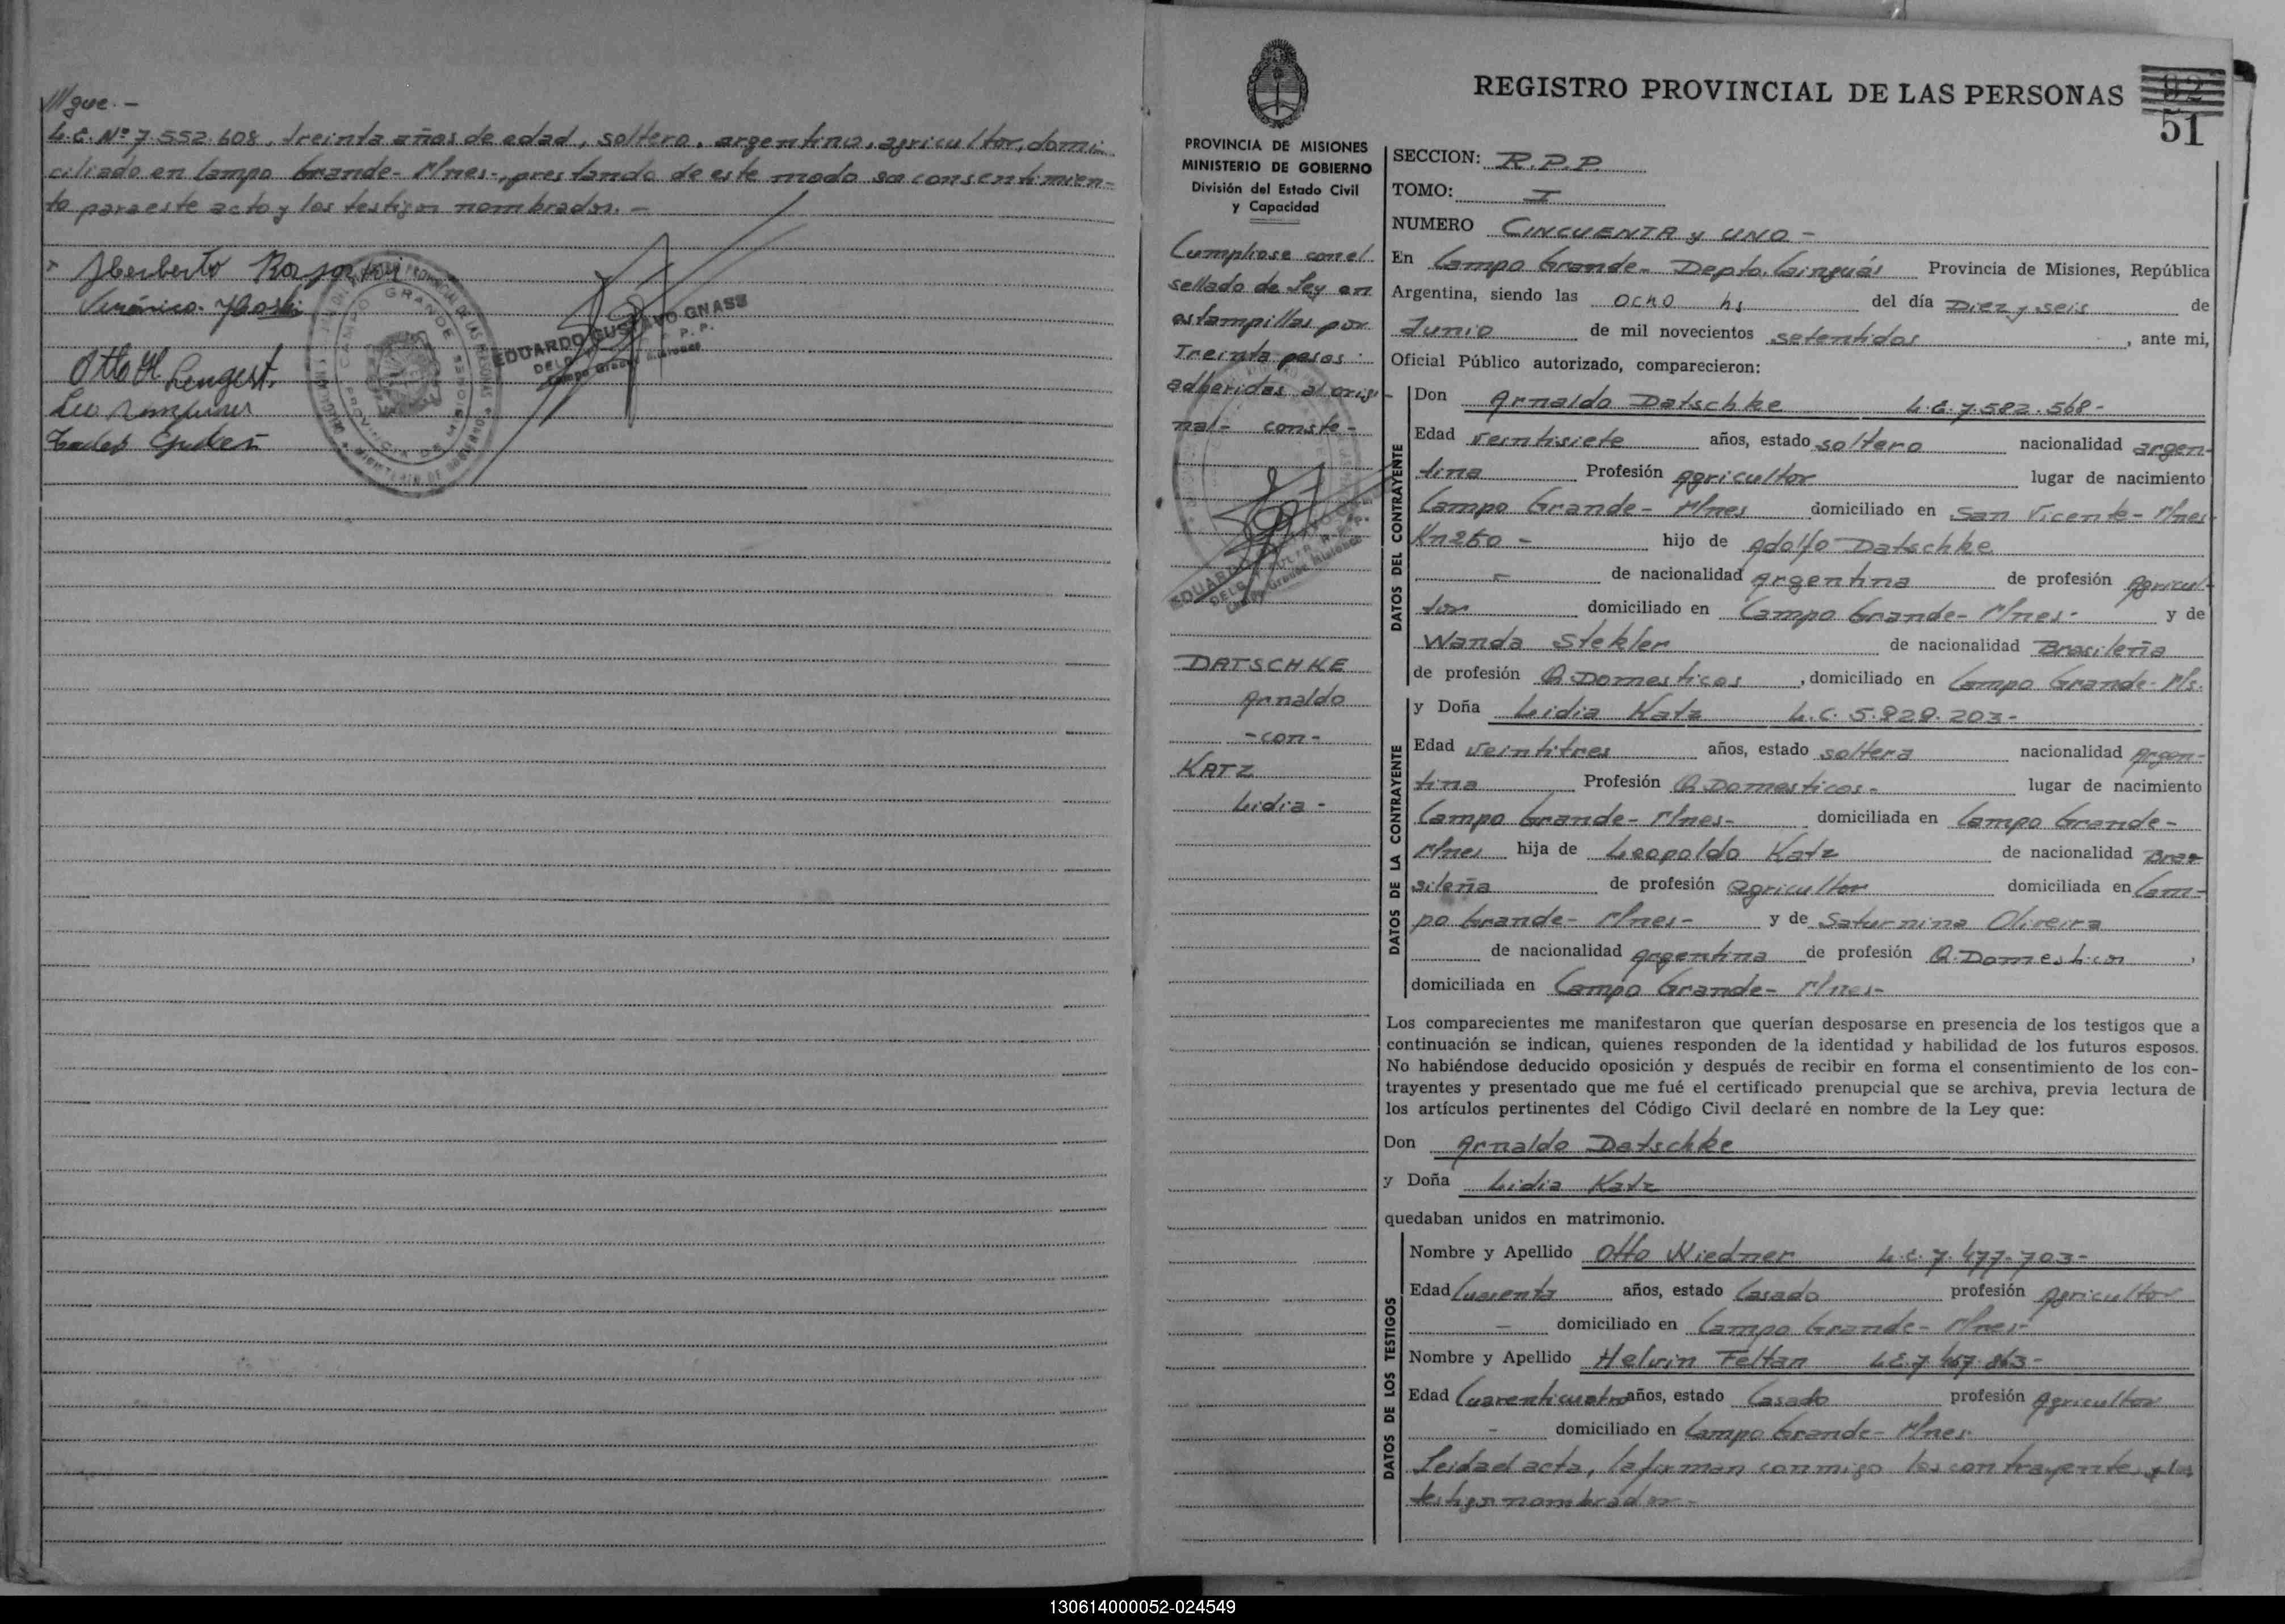 ///gue.-
L.E. Nº 7.552.608, treinta años de edad, soltero, argentino, agricultor, domi-
ciliado en Campo Grande- Mnes-, prestando de este modo su consentimien-
to para este acto y los testigos nombrados.-
Otto H Lengert.
EDUARDO GUSTAVO GNASS
DELEG. R. P. P.
Campo Grande Misiones
REGISTRO PROVINCIAL DE LAS PERSONAS
92
51
PROVINCIA DE MISIONES
MINISTERIO DE GOBIERNO
División del Estado Civil
y Capacidad
Cumpliose con el
sellado de Ley en
estampillas por
Treinta pesos
adheridas al origi-
nal- conste-
EDUARDO GUSTAVO
Campo Grande Misiones
DATSCHKE
Arnaldo
-con-
KATZ
Lidia-
SECCION: R.P.P.
TOMO: I
NUMERO CINCUENTA y UNO-
En Campo Grande- Depto. Cainguás Provincia de Misiones, República
Argentina, siendo las ocho hs del día Diez y seis de
Junio de mil novecientos setentidos, ante mi,
Oficial Público autorizado, comparecieron:
DATOS DEL CONTRAYENTE
Don Arnaldo Datschke L.E. 7.582.568-
Edad veintisiete años, estado soltero nacionalidad argen-
tina Profesión agricultor lugar de nacimiento
Campo Grande- Mnes domiciliado en San Vicente- Mnes
Km 260- hijo de Adolfo Datschke
- de nacionalidad Argentina de profesión Agricul-
tor domiciliado en Campo Grande- Mnes- y de
Wanda Stekler de nacionalidad Brasileña
de profesión Q. Domesticos, domiciliado en Campo Grande- Ms.
DATOS DE LA CONTRAYENTE
y Doña Lidia Katz L.C. 5.828.203-
Edad veintitres años, estado soltera nacionalidad Argen-
tina Profesión Q. Domesticos- lugar de nacimiento
Campo Grande- Mnes- domiciliada en Campo Grande-
Mnes hija de Leopoldo Katz de nacionalidad Bra-
sileña de profesión agricultor domiciliada en Cam-
po Grande- Mnes- y de Saturnina Oliveira
de nacionalidad argentina de profesión Q. Domesticos,
domiciliada en Campo Grande- Mnes-
Los comparecientes me manifestaron que querían desposarse en presencia de los testigos que a
continuación se indican, quienes responden de la identidad y habilidad de los futuros esposos.
No habiéndose deducido oposición y después de recibir en forma el consentimiento de los con-
trayentes y presentado que me fué el certificado prenupcial que se archiva, previa lectura de
los artículos pertinentes del Código Civil declaré en nombre de la Ley que:
Don Arnaldo Datschke
y Doña Lidia Katz
quedaban unidos en matrimonio.
DATOS DE LOS TESTIGOS
Nombre y Apellido Otto Wiedner L.E. 7.477.703-
Edad Cuarenta años, estado Casado profesión Agricultor
- domiciliado en Campo Grande- Mnes-
Nombre y Apellido Helvin Feltan L.E. 7.467.863-
Edad Cuarenticuatro años, estado Casado profesión Agricultor
- domiciliado en Campo Grande- Mnes-
Leida el acta, la firman conmigo los contrayentes y los
testigos nombrados-
130614000052-024549